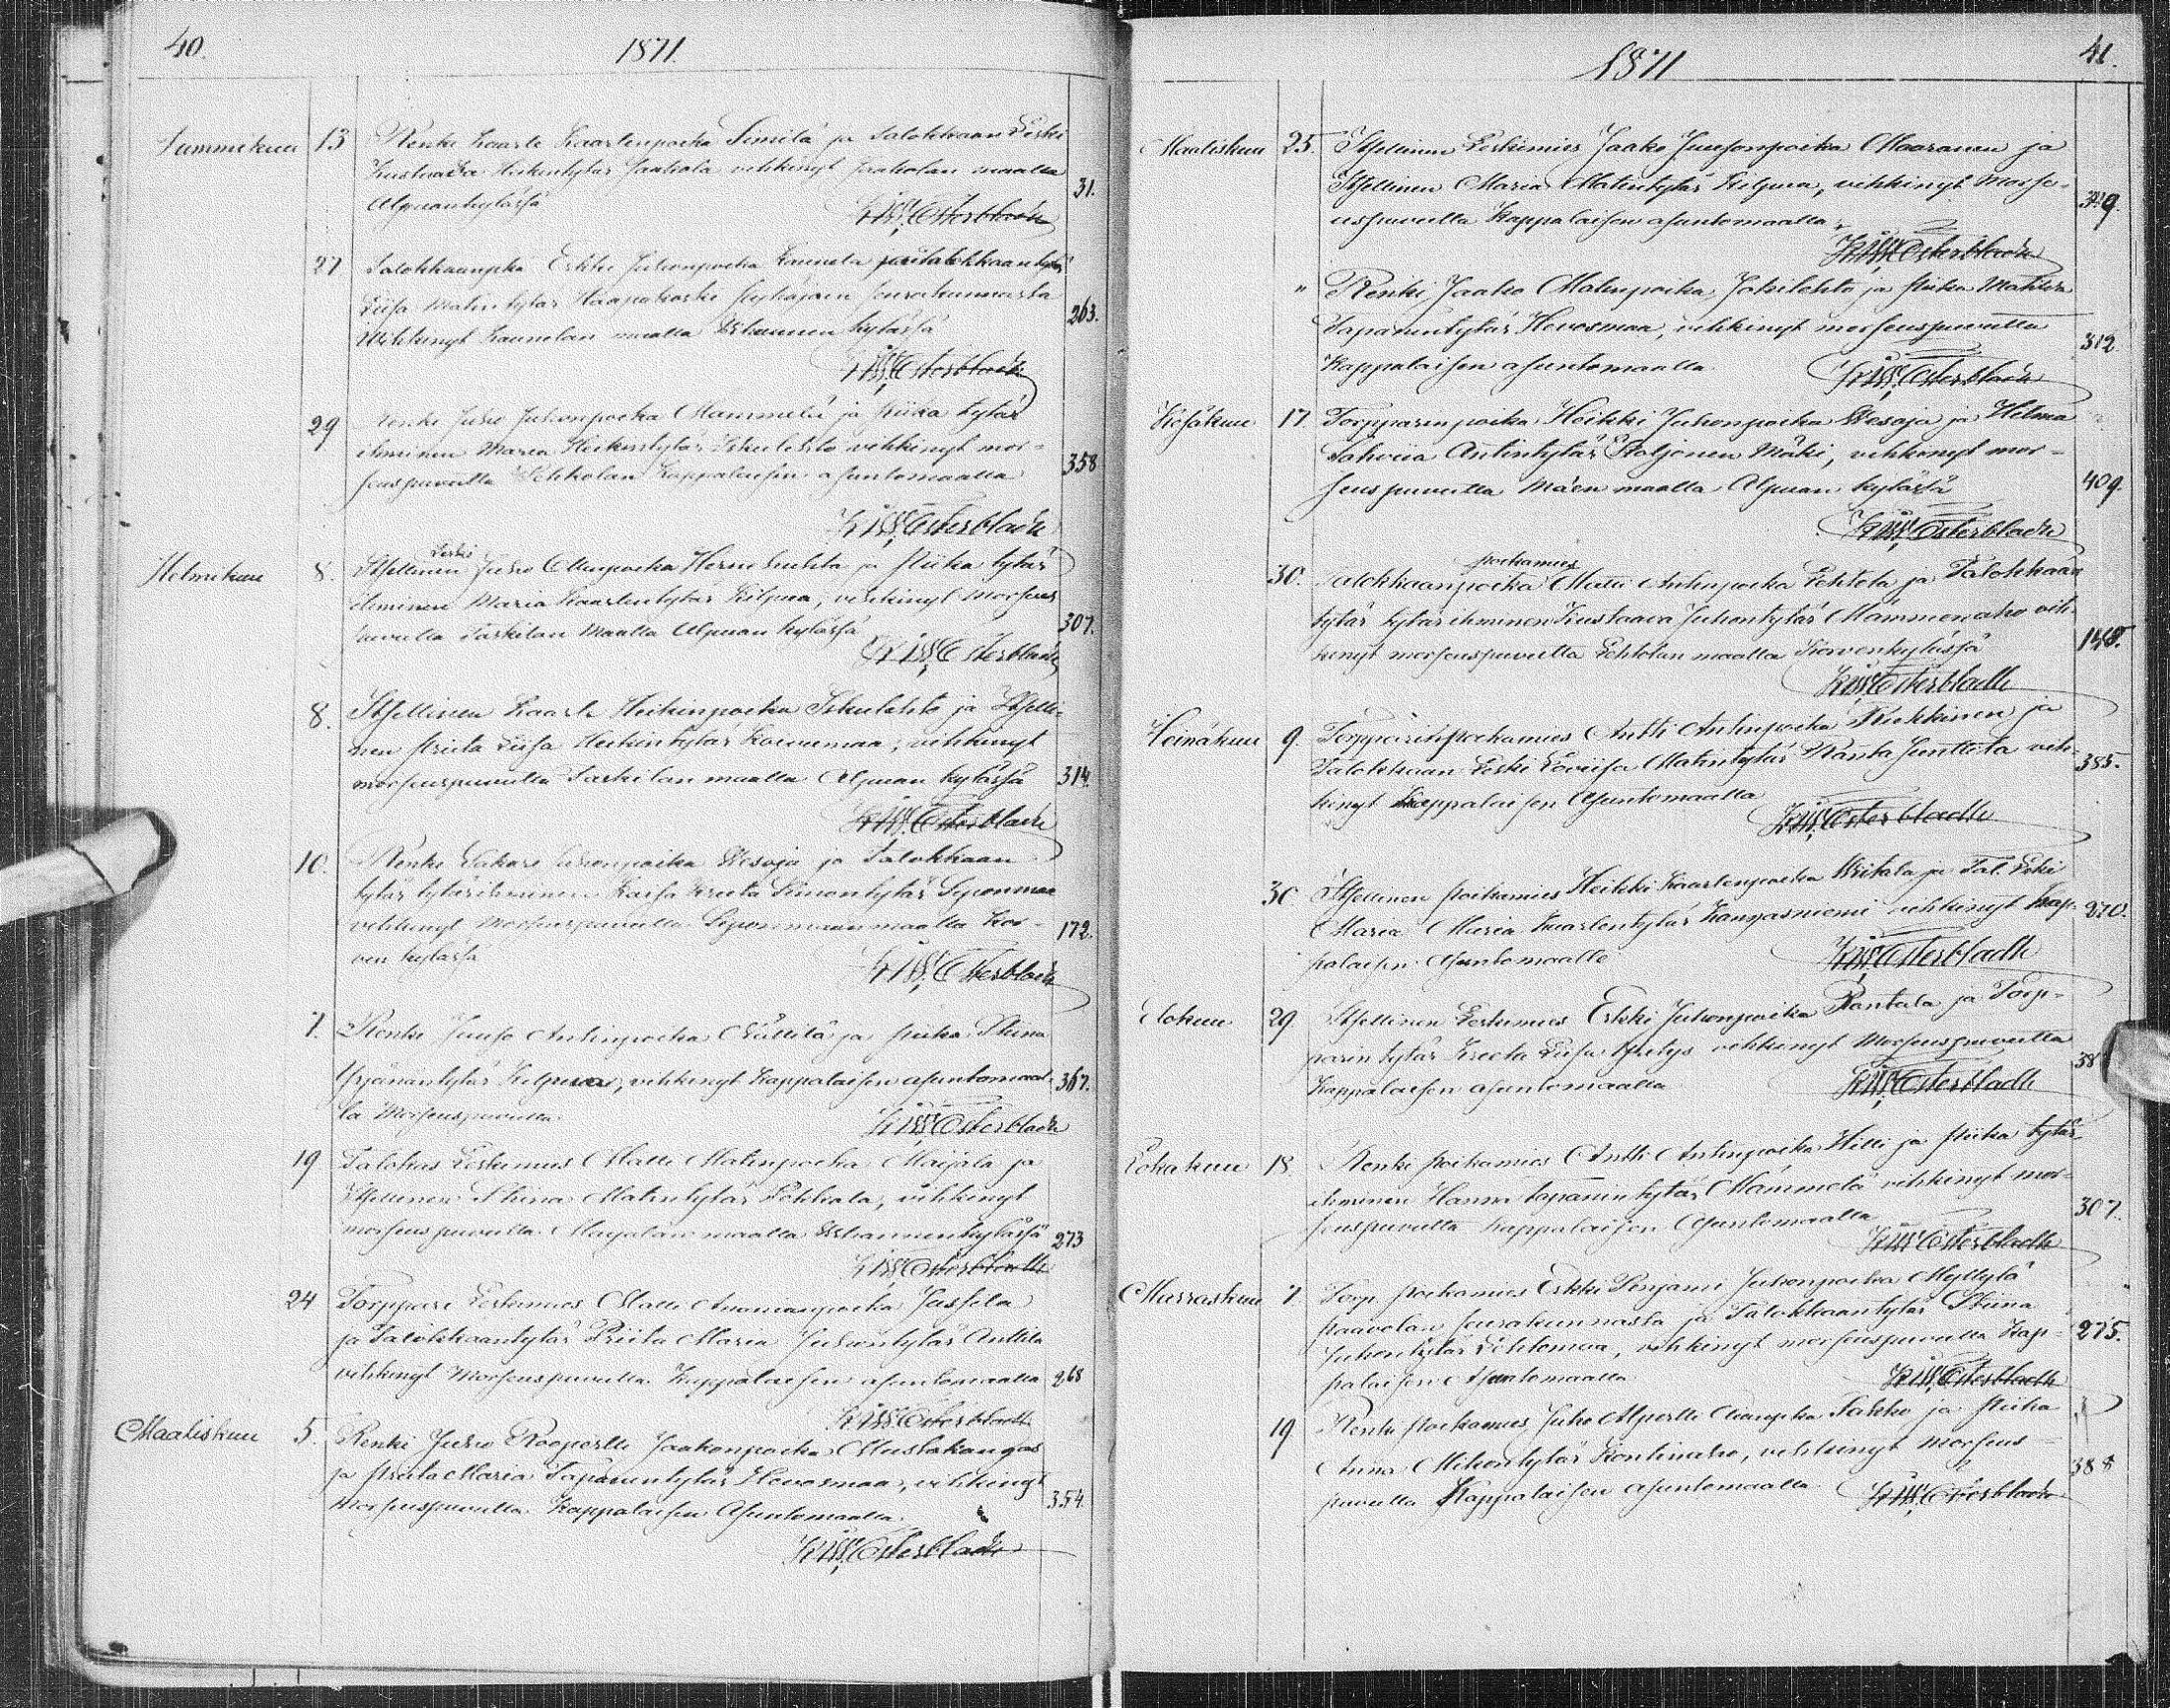 40. 1871.
Tammikuu 13 Renki Kaarle Kaarlenpoika Simila ja talokkaan Leski
Heikintytär Jaakola vihkinyt Jaakolan maalla 31.
Alpuankylässä
K. W. Österbladh
27 Talokkaanpka Erkki Juhonpoika Kaunela ja talokkaantytär
Liisa Matintytär Haapakoski Pyhäjoen seurakunnasta 263.
Wihkinyt Kaunelan maalla kylässä
K. W. Österbladh
29 Renki Juho Juhonpoika Mammela ja Piika tytär
ihminen Maria Heikintytär Iskulehto vihkinyt mor- 358
siuspuvulla Kappalaisen asuntomaalla
K. W. Österbladh
Helmikuu 8. Itsellinen Leski Juho Ollinpoika Hernehuhta ja Piika tytär
ihminen Maria Kaarlentytär Kilpua, vihkinyt morsius
puvulla Taskilan maalla Alpuan kylässä 307.
K. W. Österbladh
8. Itsellinen Kaarle Heikinpoika Iskulehto ja Itselli-
nen Priita Liisa Heikintytär Koivumaa, vihkinyt
morsiuspuvulla Taskilan maalla Alpuan kylässä 314.
K. W. Österbladh
10. Renki Sakari Juhonpoika Wesoja ja Talokkaan
tytär tytärihminen Kaisa Kreeta Simontytär Siponmaa
vihkinyt Morsiuspuvulla Siponmaan maalla Kor- 172.
ven kylässä
K. W. Österbladh
7. Renki Juuso Antinpoika Nättilä ja Piika Stiina
Yrjänäntytär Kilpua, vihkinyt Kappalaisen asuntomaal- 367.
la Morsiuspuvulla
K. W. Österbladh
19 Talokas Leskimies Matti Matinpoika Maijala ja
Itsellinen Stiina Matintytär Pokkala, vihkinyt
morsiuspuvulla Maijalan maalla kylässä 273
K. W. Österbladh
24 Torppari Leskimies Matti Jussila
ja Talokkaantytär Priita Maria Juhontytär Anttila
vihkinyt Morsiuspuvulla Kappalaisen asuntomaalla 268
K. W. Österbladh
Maaliskuu 5. Renki Juho Roopertti Jaakonpoika Mustakangas
ja Priita Maria Tapanintytär Hevosmaa, vihkinyt
Morsiuspuvulla Kappalaisen Asuntomaalla. 354.
K. W. Österbladh
1871 41.
Maaliskuu 25. Itsellinen Leskimies Jaako Juusonpoika Maaranen ja
Itsellinen Maria Matintytär Kilpua, vihkinyt Morsi-
uspuvulla Kappalaisen asuntomaalla.
K. W. Österbladh
" Renki Jaako Matinpoika Jokilehto ja Piika Matilda
Tapanintytär Hevosmaa, vihkinyt morsiuspuvulla 312
Kappalaisen asuntomaalla
K. W. Österbladh
Kesäkuu 17. Torpparin poika Heikki Juhonpoika Wesoja ja Helma
Sohviia Antintytär Poljonen Mäki, vihkinyt mor-
siuspuvulla Mäen maalla Alpuan kylässä 409.
K. W. Österbladh
30. Talokkaanpoika poikamies Matti Antinpoika Lehtola ja Talokkaan
tytär tytärihminen Kustaava Juhontytär Mammonaho vih-
kinyt morsiuspuvulla Lehtolan maalla Korvenkylässä
K. W. Österbladh
Heinäkuu 9. Torpparinpoikamies Antti Antinpoika Kukkinen ja
Talokkaan Leski Loviisa Matintytär Ranta Junttila vih- 385.
kinyt Kappalaisen Asuntomaalla
K. W. Österbladh
30. Itsellinen Poikamies Heikki Kaarlenpoika Kitala ja Tal. Leski
Maria Maria Kaarlentytär Kangasniemi vihkinyt Kap- 270.
palaisen Asuntomaalla
K. W. Österbladh
Elokuu 29. Itsellinen Leskimies Erkki Juhonpoika Rantala ja Torp-
parin tytär Kreeta Liisa vihkinyt Morsiuspuvulla
Kappalaisen asuntomaalla 38
K. W. Österbladh
Lokakuu 18. Renki Poikamies Antti Antinpoika Hilli ja Piika tytär-
ihminen Hanna Tapanintytär Mämmelä vihkinyt mor-
siuspuvulla Kappalaisen Asuntomaalla 307.
K. W. Österbladh
Marraskuu 7. Torp. Poikamies Erkki Penjami Juhonpoika Myllylä
Paavolan seurakunnasta ja Talokkaantytär Stiina
Juhontytär Lehtomaa, vihkinyt morsiuspuvulla Kap- 275.
palaisen Asuntomaalla
K. W. Österbladh
19 Renki Poikamies Juho Alpertti Sakko ja Piika
Anna Mikontytär Kontinaho, vihkinyt Morsius- 388
puvulla Kappalaisen asuntomaalla.
K. W. Österbladh